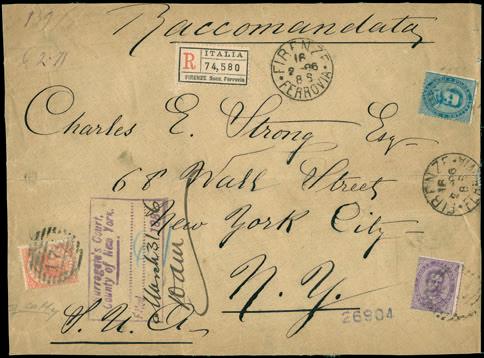 Raccomandata
R
ITALIA
74,580
FIRENZE Succ. Ferrovia
FIRENZE
16
2-96
8S
FERROVIA
Charles E. Strong Esq-
68 Wall Street
New York City
N. Y.
S. U. A.
Surrogate's Court,
County of New York.
Filed
March 3/96
FIRENZE
16
26904